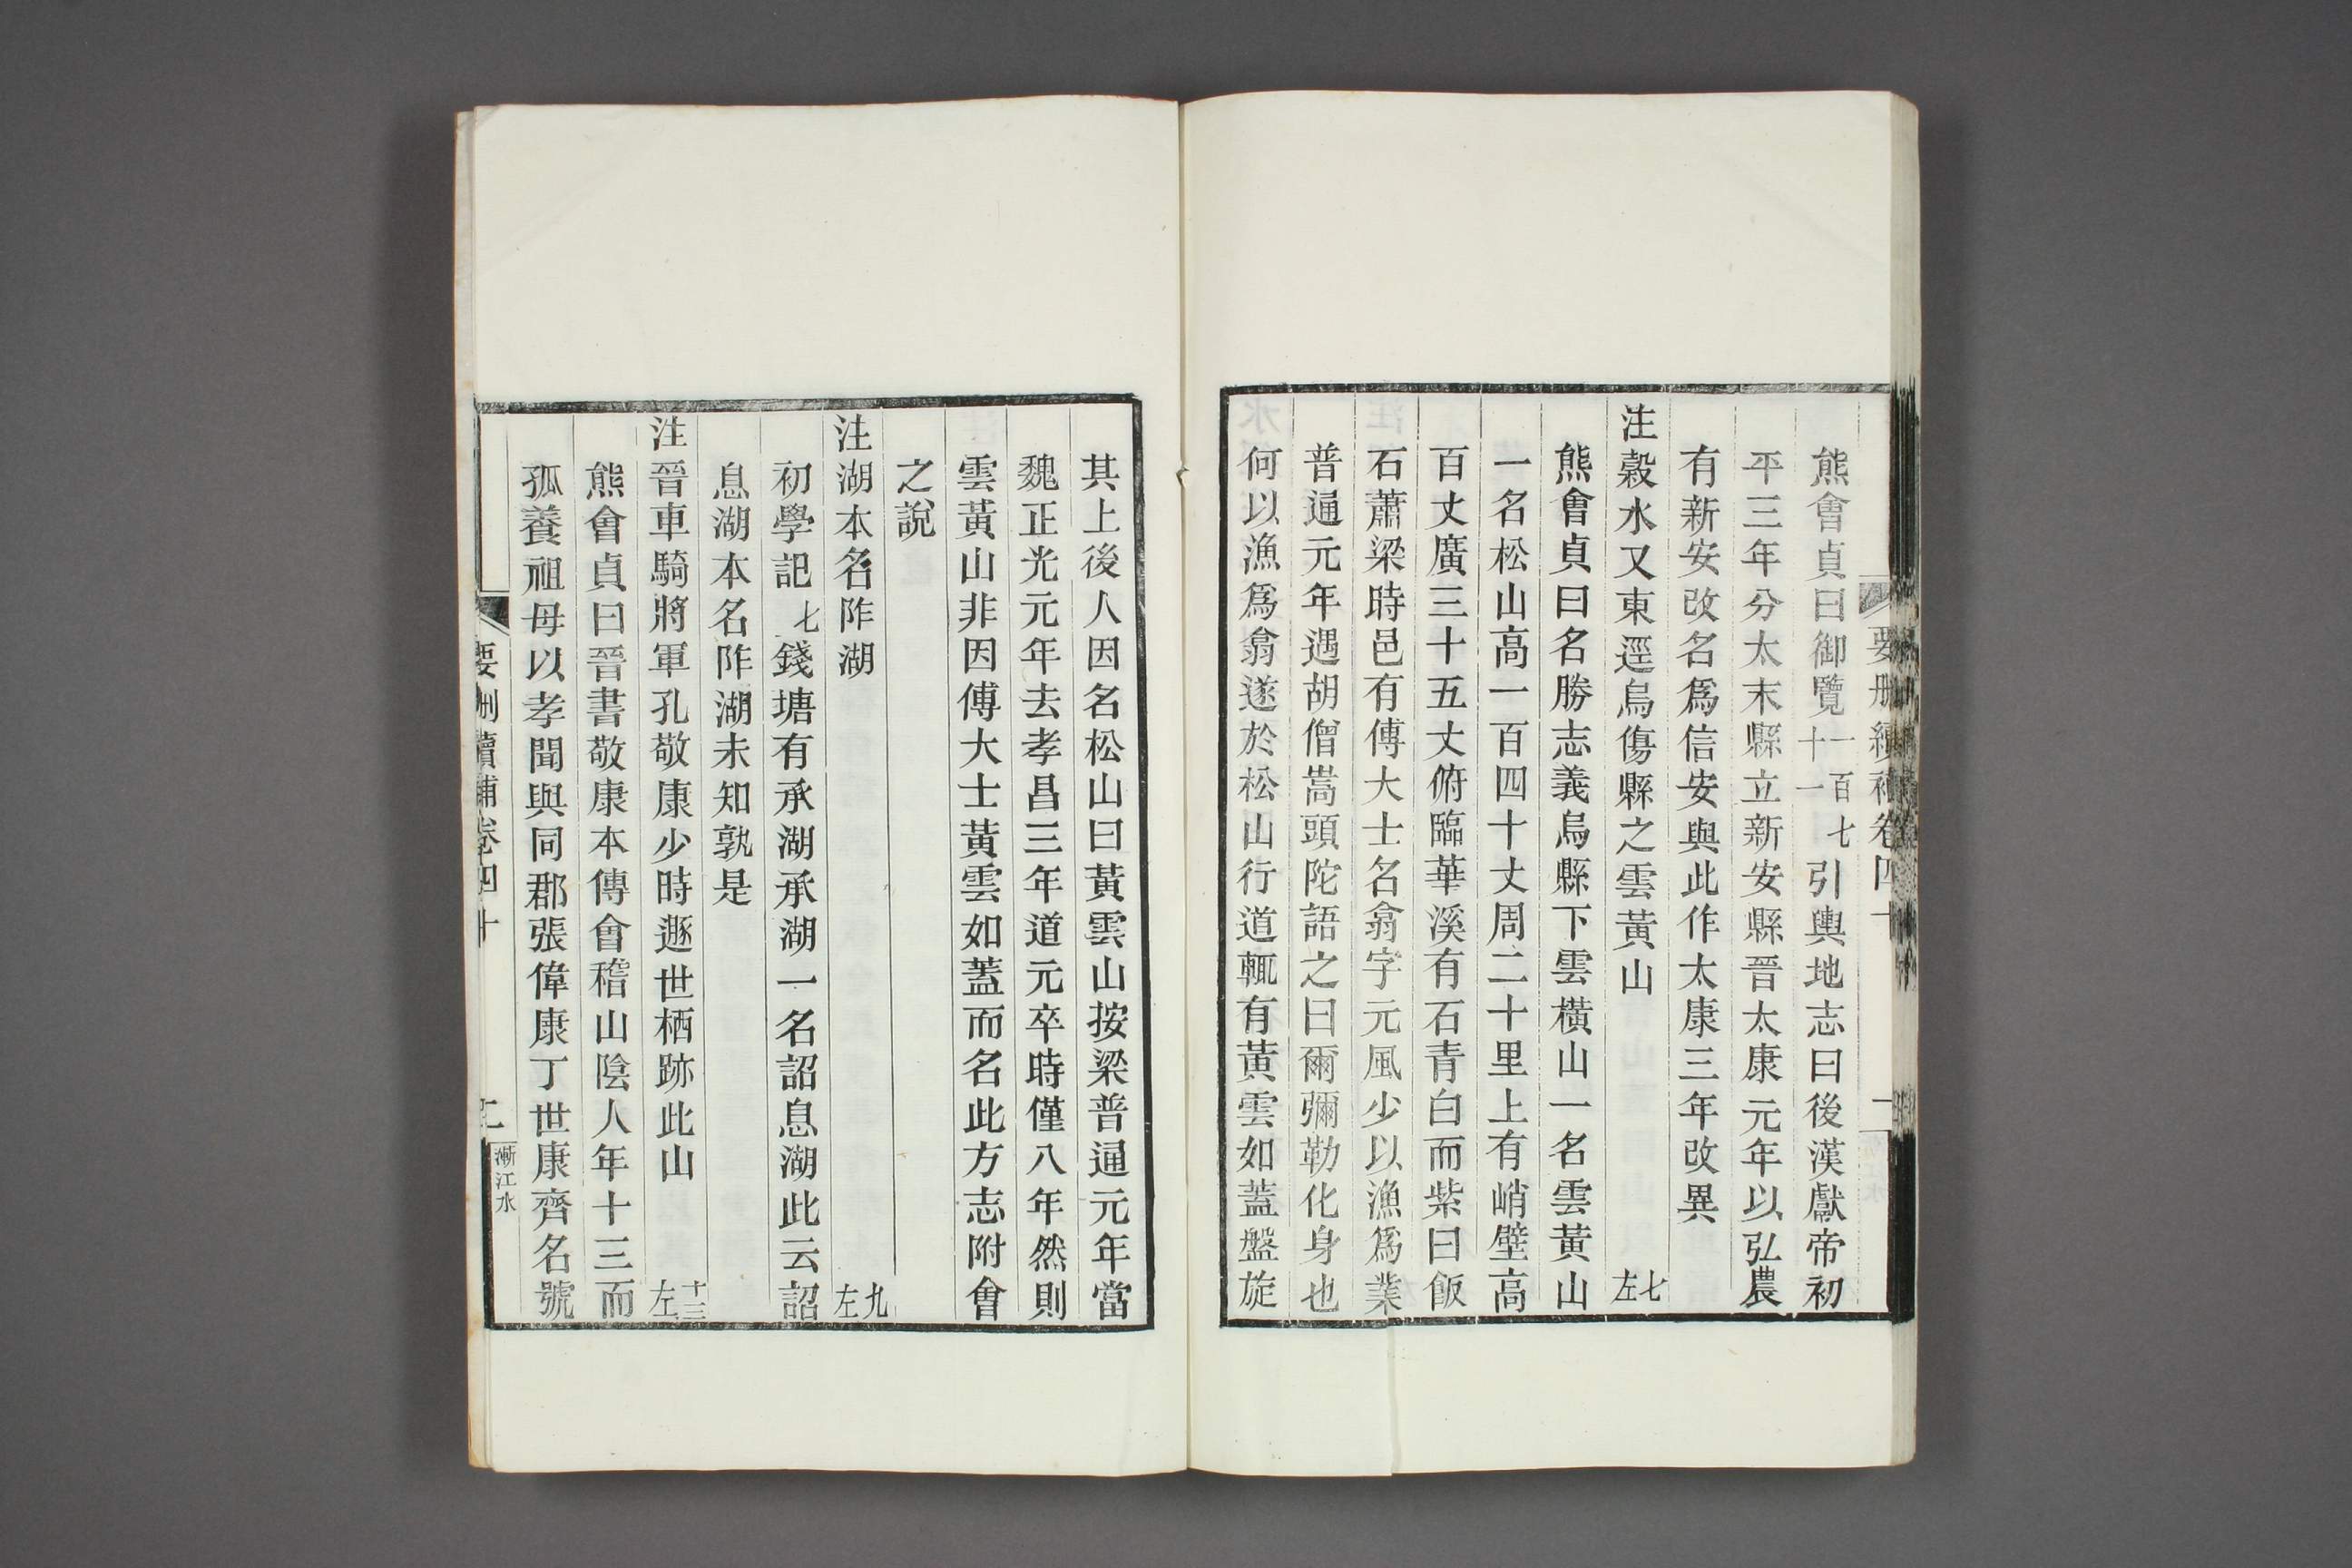 要刪續補卷四十
熊會貞曰御覽一百七十一引輿地志曰後漢獻帝初
平三年分太末縣立新安縣晉太康元年以弘農
有新安改名爲信安與此作太康三年改異
注穀水又東逕烏傷縣之雲黃山 七左
熊會貞曰名勝志義烏縣下雲橫山一名雲黃山
一名松山高一百四十丈周二十里上有峭壁高
百丈廣三十五丈俯臨華溪有石青白而紫曰飯
石蕭梁時邑有傅大士名翕字元風少以漁爲業
普通元年遇胡僧嵩頭陀語之曰爾彌勒化身也
何以漁爲翕遂於松山行道輒有黃雲如蓋盤旋
其上後人因名松山曰黃雲山按梁普通元年當
魏正光元年去孝昌三年道元卒時僅八年然則
雲黃山非因傅大士黃雲如蓋而名此方志附會
之說
注湖本名阼湖 九左
初學記七錢塘有承湖承湖一名詔息湖此云詔
息湖本名阼湖未知孰是
注晉車騎將軍孔敬康少時遯世栖跡此山 十三左
熊會貞曰晉書敬康本傳會稽山陰人年十三而
孤養祖母以孝聞與同郡張偉康丁世康齊名號
要刪續補卷四十
二
漸江水